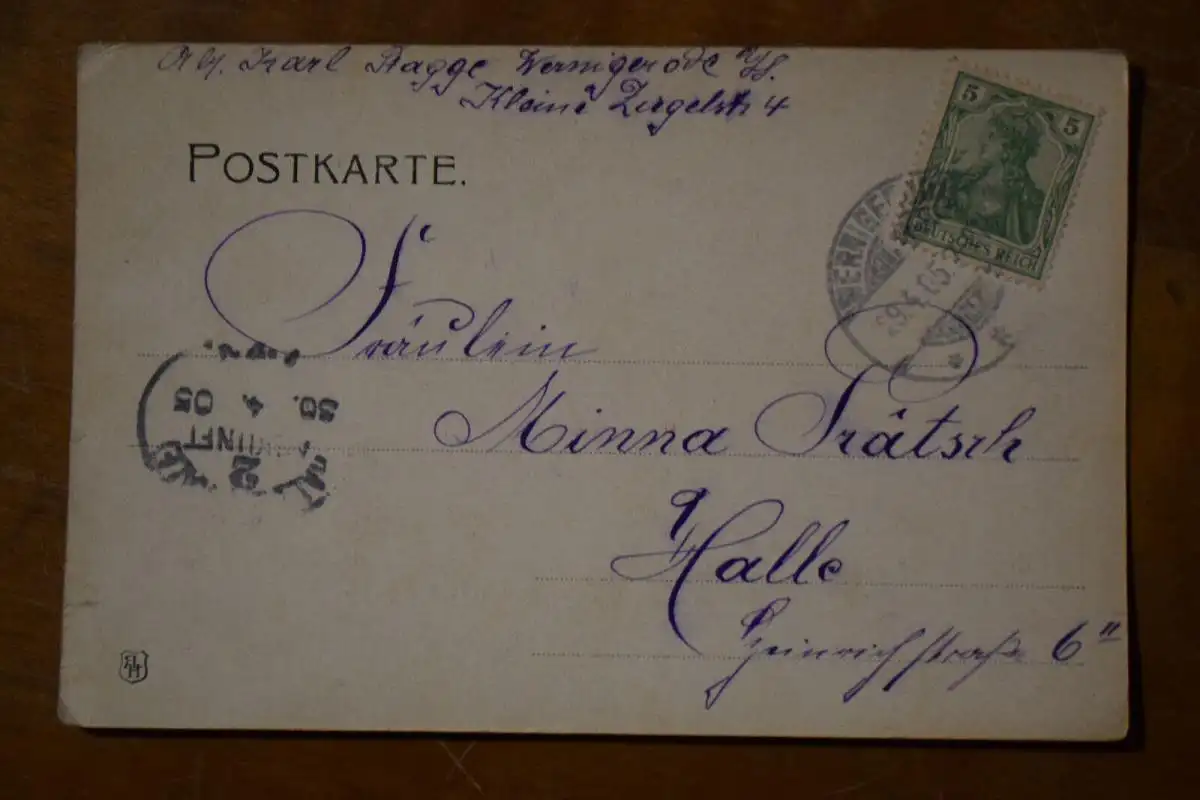 Abs. Karl Ragge Wernigerode a/H.
Kleine Ziegelstr 4
POSTKARTE.
5 5
DEUTSCHES REICH
WERNIGER
29.4.05
Fräulein
Minna Trätsch
Halle
Heinrichstraße 6"
30. 4. 05
KUNFT
2